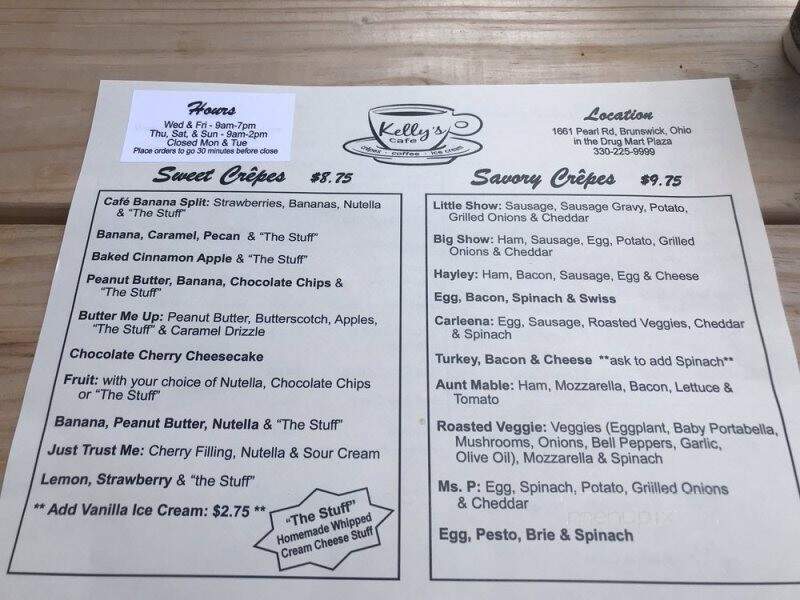 Hours
Wed & Fri - 9am-7pm
Thu, Sat, & Sun - 9am-2pm
Closed Mon & Tue
Place orders to go 30 minutes before close
Kelly's
Cafe
crêpes - coffee - ice cream
Location
1661 Pearl Rd, Brunswick, Ohio
in the Drug Mart Plaza
330-225-9999
Sweet Crêpes $8.75
Café Banana Split: Strawberries, Bananas, Nutella
& "The Stuff"
Banana, Caramel, Pecan & "The Stuff"
Baked Cinnamon Apple & "The Stuff"
Peanut Butter, Banana, Chocolate Chips &
"The Stuff"
Butter Me Up: Peanut Butter, Butterscotch, Apples,
"The Stuff" & Caramel Drizzle
Chocolate Cherry Cheesecake
Fruit: with your choice of Nutella, Chocolate Chips
or "The Stuff"
Banana, Peanut Butter, Nutella & "The Stuff"
Just Trust Me: Cherry Filling, Nutella & Sour Cream
Lemon, Strawberry & "the Stuff"
** Add Vanilla Ice Cream: $2.75 **
"The Stuff"
Homemade Whipped
Cream Cheese Stuff
Savory Crêpes $9.75
Little Show: Sausage, Sausage Gravy, Potato,
Grilled Onions & Cheddar
Big Show: Ham, Sausage, Egg, Potato, Grilled
Onions & Cheddar
Hayley: Ham, Bacon, Sausage, Egg & Cheese
Egg, Bacon, Spinach & Swiss
Carleena: Egg, Sausage, Roasted Veggies, Cheddar
& Spinach
Turkey, Bacon & Cheese **ask to add Spinach**
Aunt Mable: Ham, Mozzarella, Bacon, Lettuce &
Tomato
Roasted Veggie: Veggies (Eggplant, Baby Portabella,
Mushrooms, Onions, Bell Peppers, Garlic,
Olive Oil), Mozzarella & Spinach
Ms. P: Egg, Spinach, Potato, Griilled Onions
& Cheddar
menupix
Egg, Pesto, Brie & Spinach